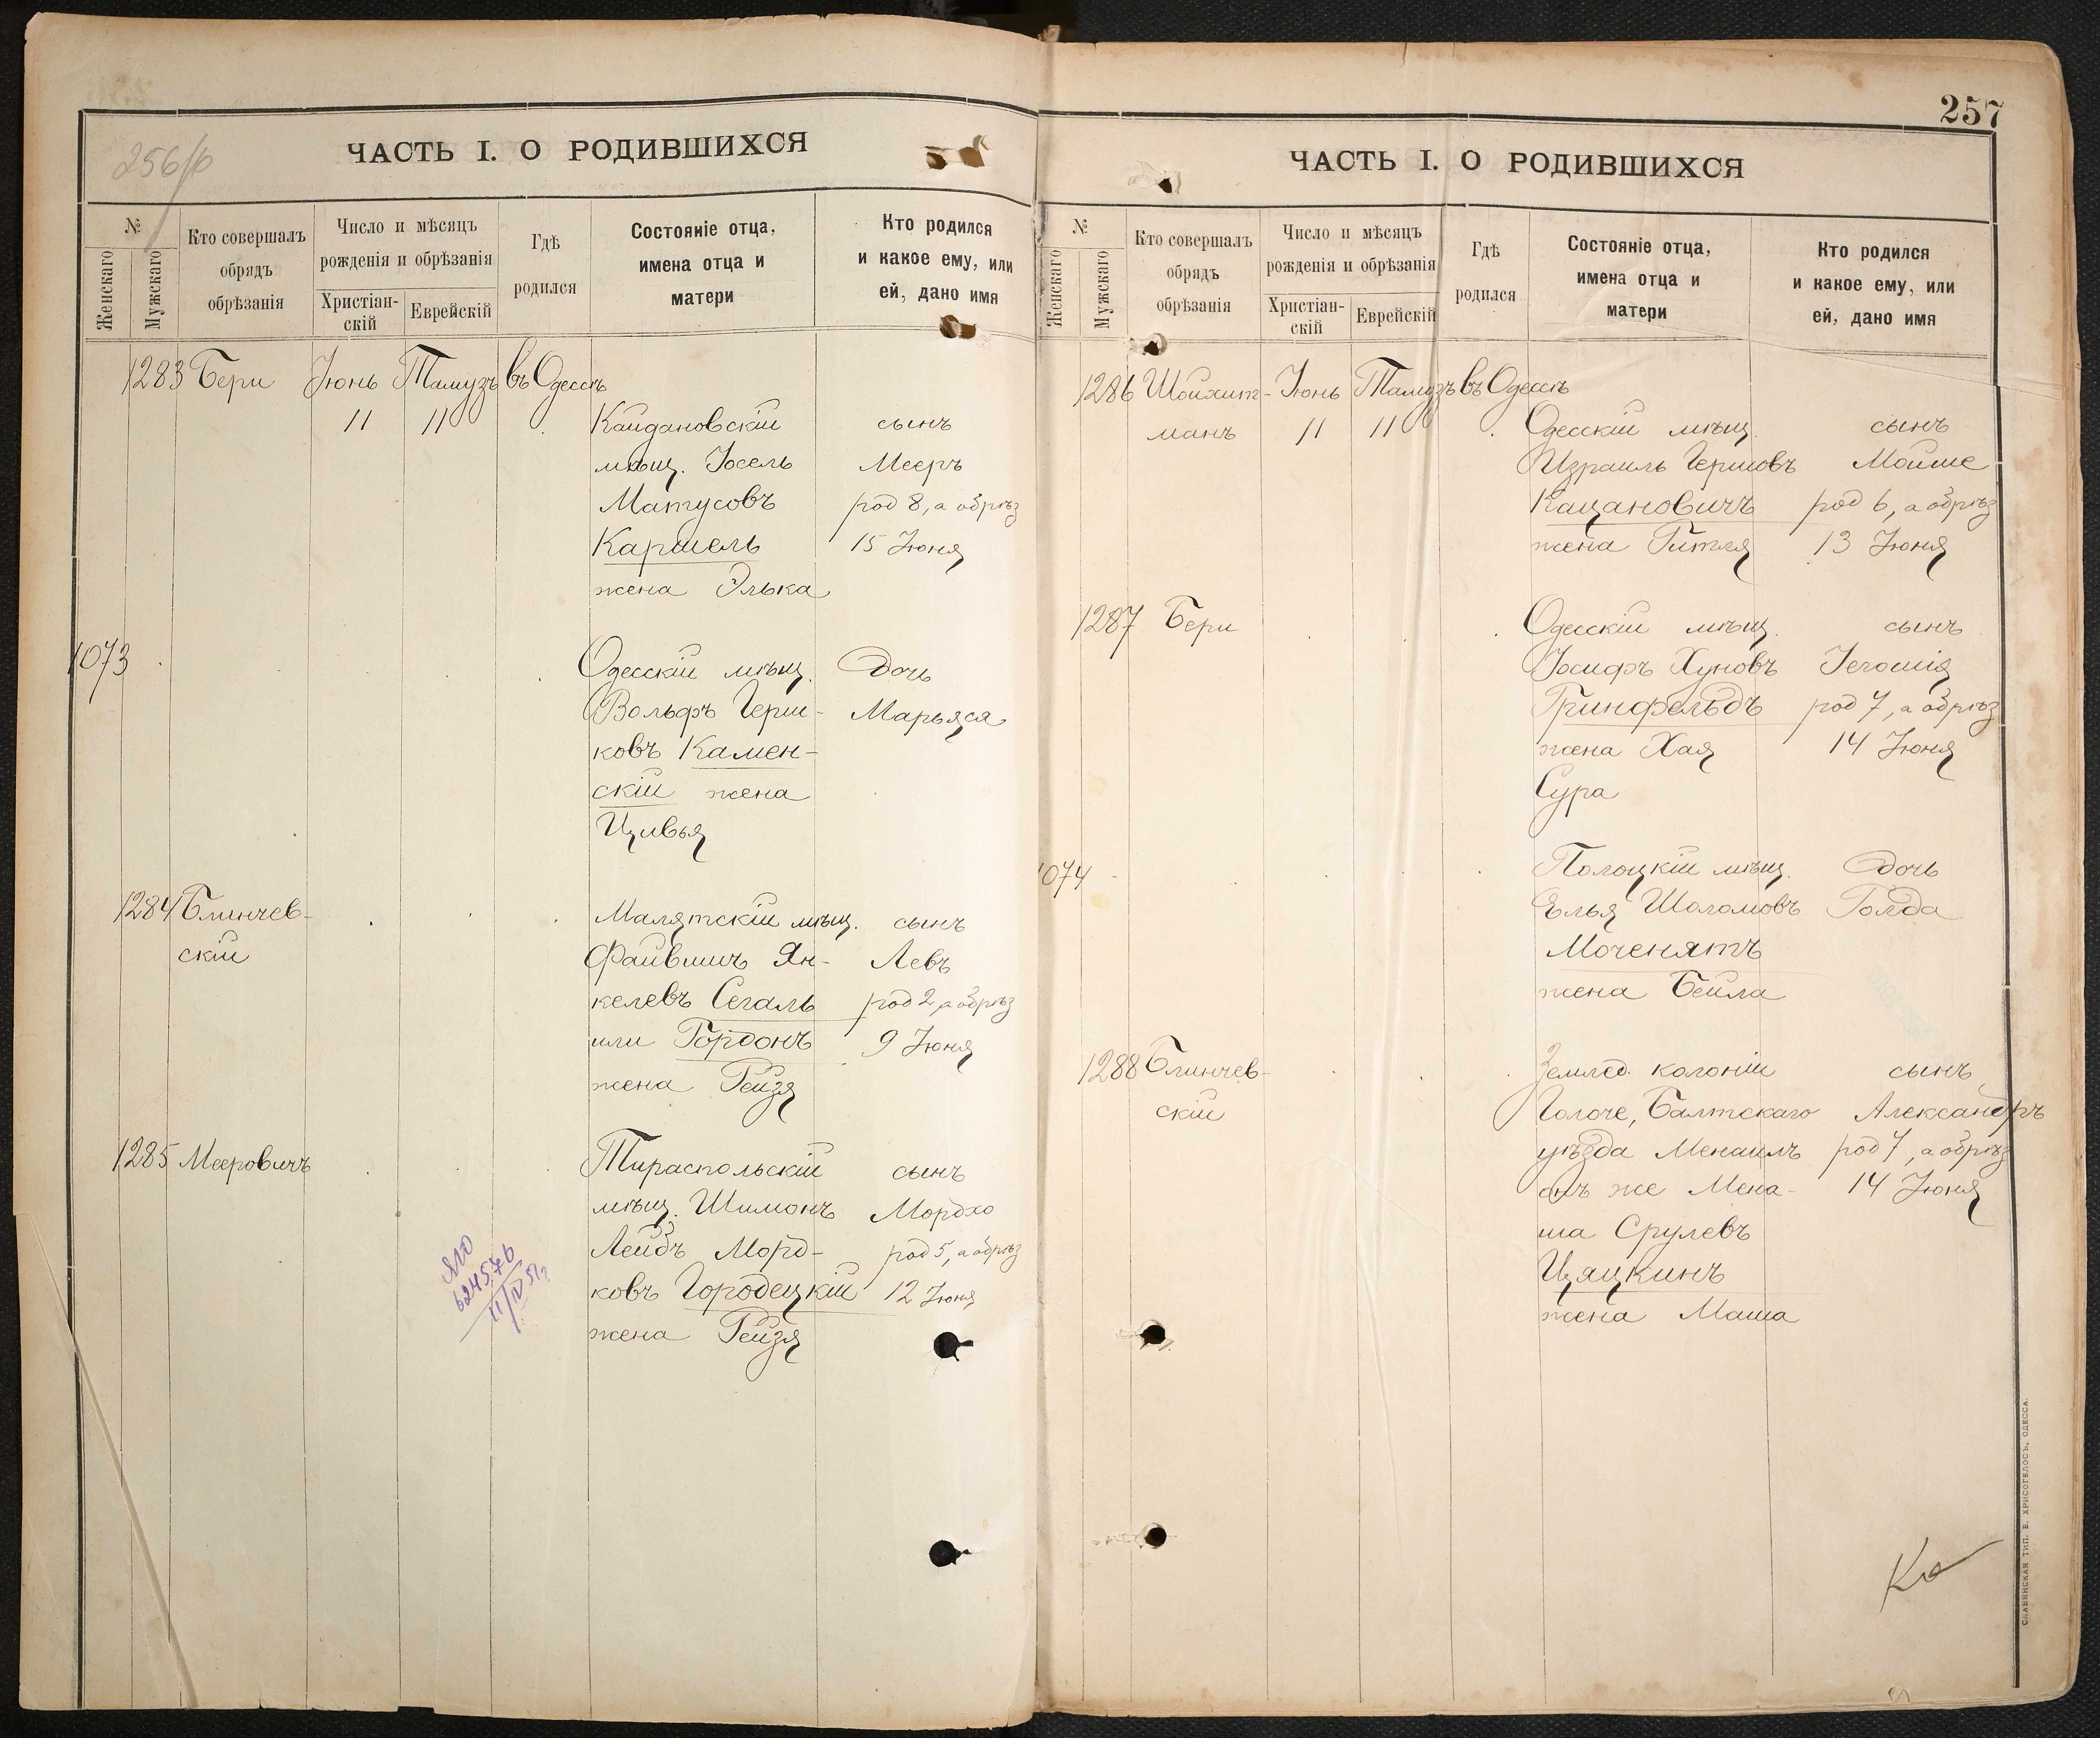 256/б
ЧАСТЬ I. О РОДИВШИХСЯ
№
Женскаго
Мужскаго
Кто совершалъ
обрядъ
обрѣзанія
Число и мѣсяцъ
рожденія и обрѣзанія
Христіан-
скій
Еврейскій
Гдѣ
родился
Состояніе отца,
имена отца и
матери
Кто родился
и какое ему, или
ей, дано имя
1283 Бери Іюнь Тамузъ въ Одессѣ
11 11 Койдановскій сынъ
мѣщ. Іосель Мееръ
Матусовъ род 8, а обрѣз
Каршель 15 Іюня
жена Элька
1073 Одесскій мѣщ. дочь
Вольфъ Герш- Марьяся
ковъ Камен-
скій жена
Цивья
1284 Блинчев- Малятскій мѣщ. сынъ
скій Файвишъ Ян- Левъ
келевъ Сегаль род 2, а обрѣз
или Гордонъ 9 Іюня
жена Рейзя
1285 Мееровичъ Тираспольскій сынъ
мѣщ. Шимонъ Мордхо
Лейбъ Морд- род 5, а обрѣз
ковъ Городецкій 12 Іюня
жена Рейзя
ЯЮ
624576
11/IV 51г
257
ЧАСТЬ I. О РОДИВШИХСЯ
№
Женскаго
Мужскаго
Кто совершалъ
обрядъ
обрѣзанія
Число и мѣсяцъ
рожденія и обрѣзанія
Христіан-
скій
Еврейскій
Гдѣ
родился
Состояніе отца,
имена отца и
матери
Кто родился
и какое ему, или
ей, дано имя
1286 Шойхит- Іюнь Тамузъ въ Одессѣ
манъ 11 11 Одесскій мѣщ. сынъ
Израиль Гершовъ Мойше
Кацановичъ род 6, а обрѣз
жена Гитля 13 Іюня
1287 Бери Одесскій мѣщ. сынъ
Іосифъ Хуновъ Іегошія
Гринфельдъ род 7, а обрѣз
жена Хая 14 Іюня
Сура
1074 Полоцкій мѣщ. дочь
Элья Шоломовъ Голда
Моченятъ
жена Бейла
1288 Блинчев- Землед. колоніи сынъ
скій Голоче, Балтскаго Александръ
уѣзда Менаилъ род 7, а обрѣз
онъ же Мена- 14 Іюня
ша Срулевъ
Цяцкинъ
жена Маша
СЛАВЯНСКАЯ ТИП. Е. ХРИСОГЕЛОСЪ, ОДЕССА.